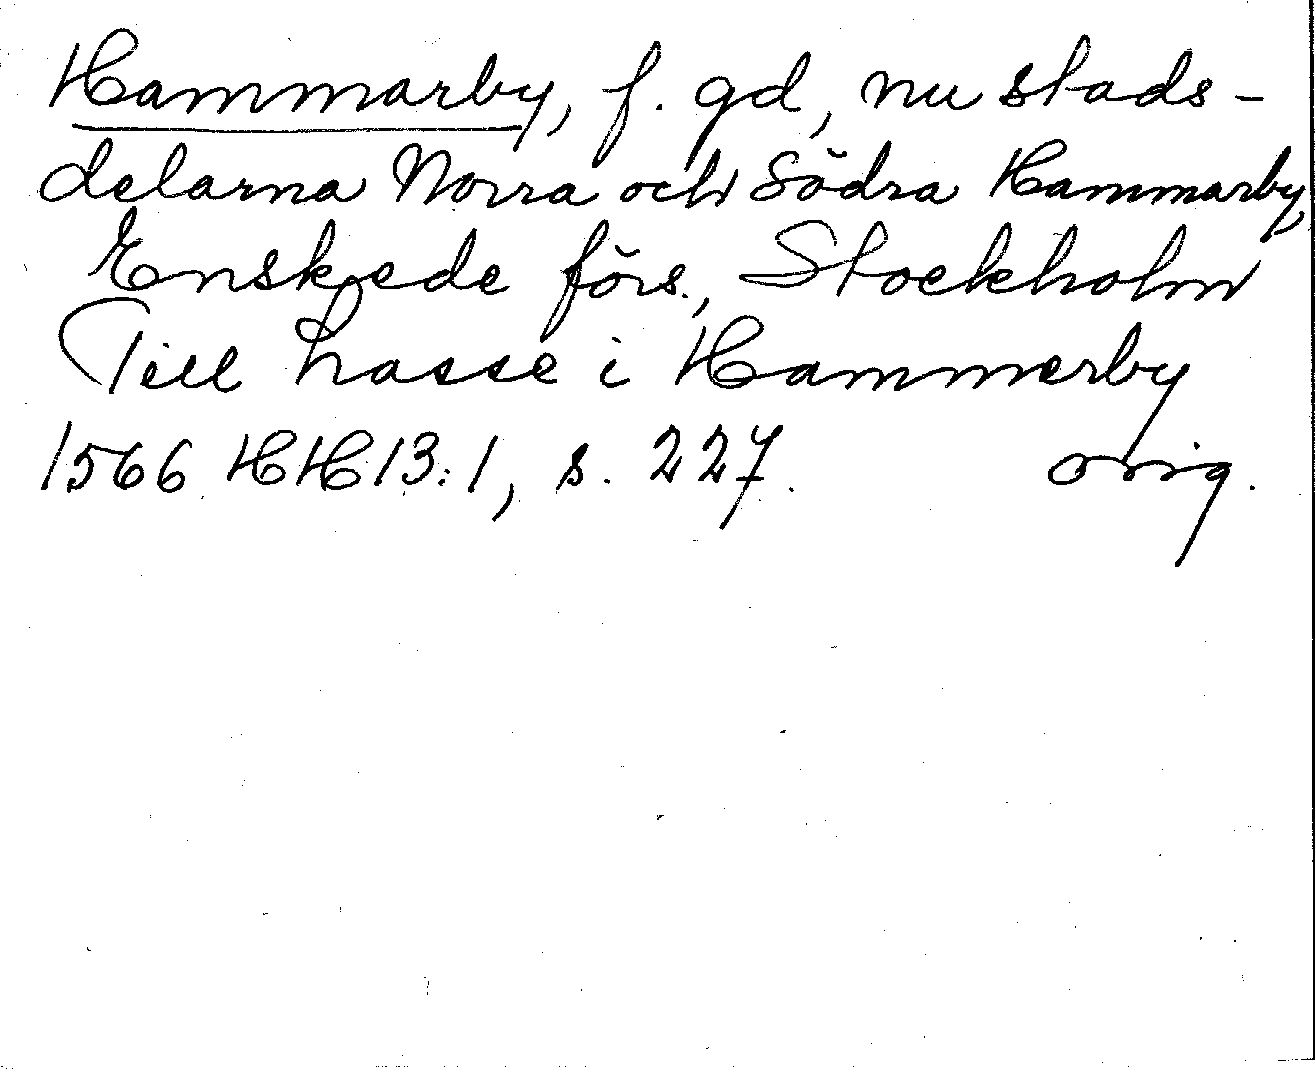 Hammarby, f. gd, nu stads-
delarna Norra och Södra Hammarby,
Enskede förs., Stockholm
Till Lasse i Hammerby
1566 HH 13:1, s. 227. orig.